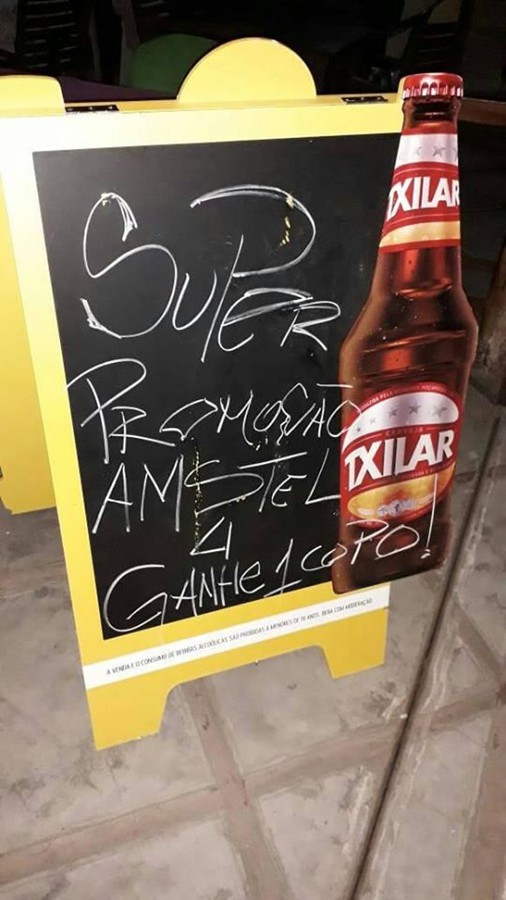 SUPER
PROMOÇÃO
AMSTEL
4
GANHE 1 COPO!
TXILAR
CERVEJA
TXILAR
A VENDA E O CONSUMO DE BEBIDAS ALCOÓLICAS SÃO PROIBIDAS A MENORES DE 18 ANOS. BEBA COM MODERAÇÃO.